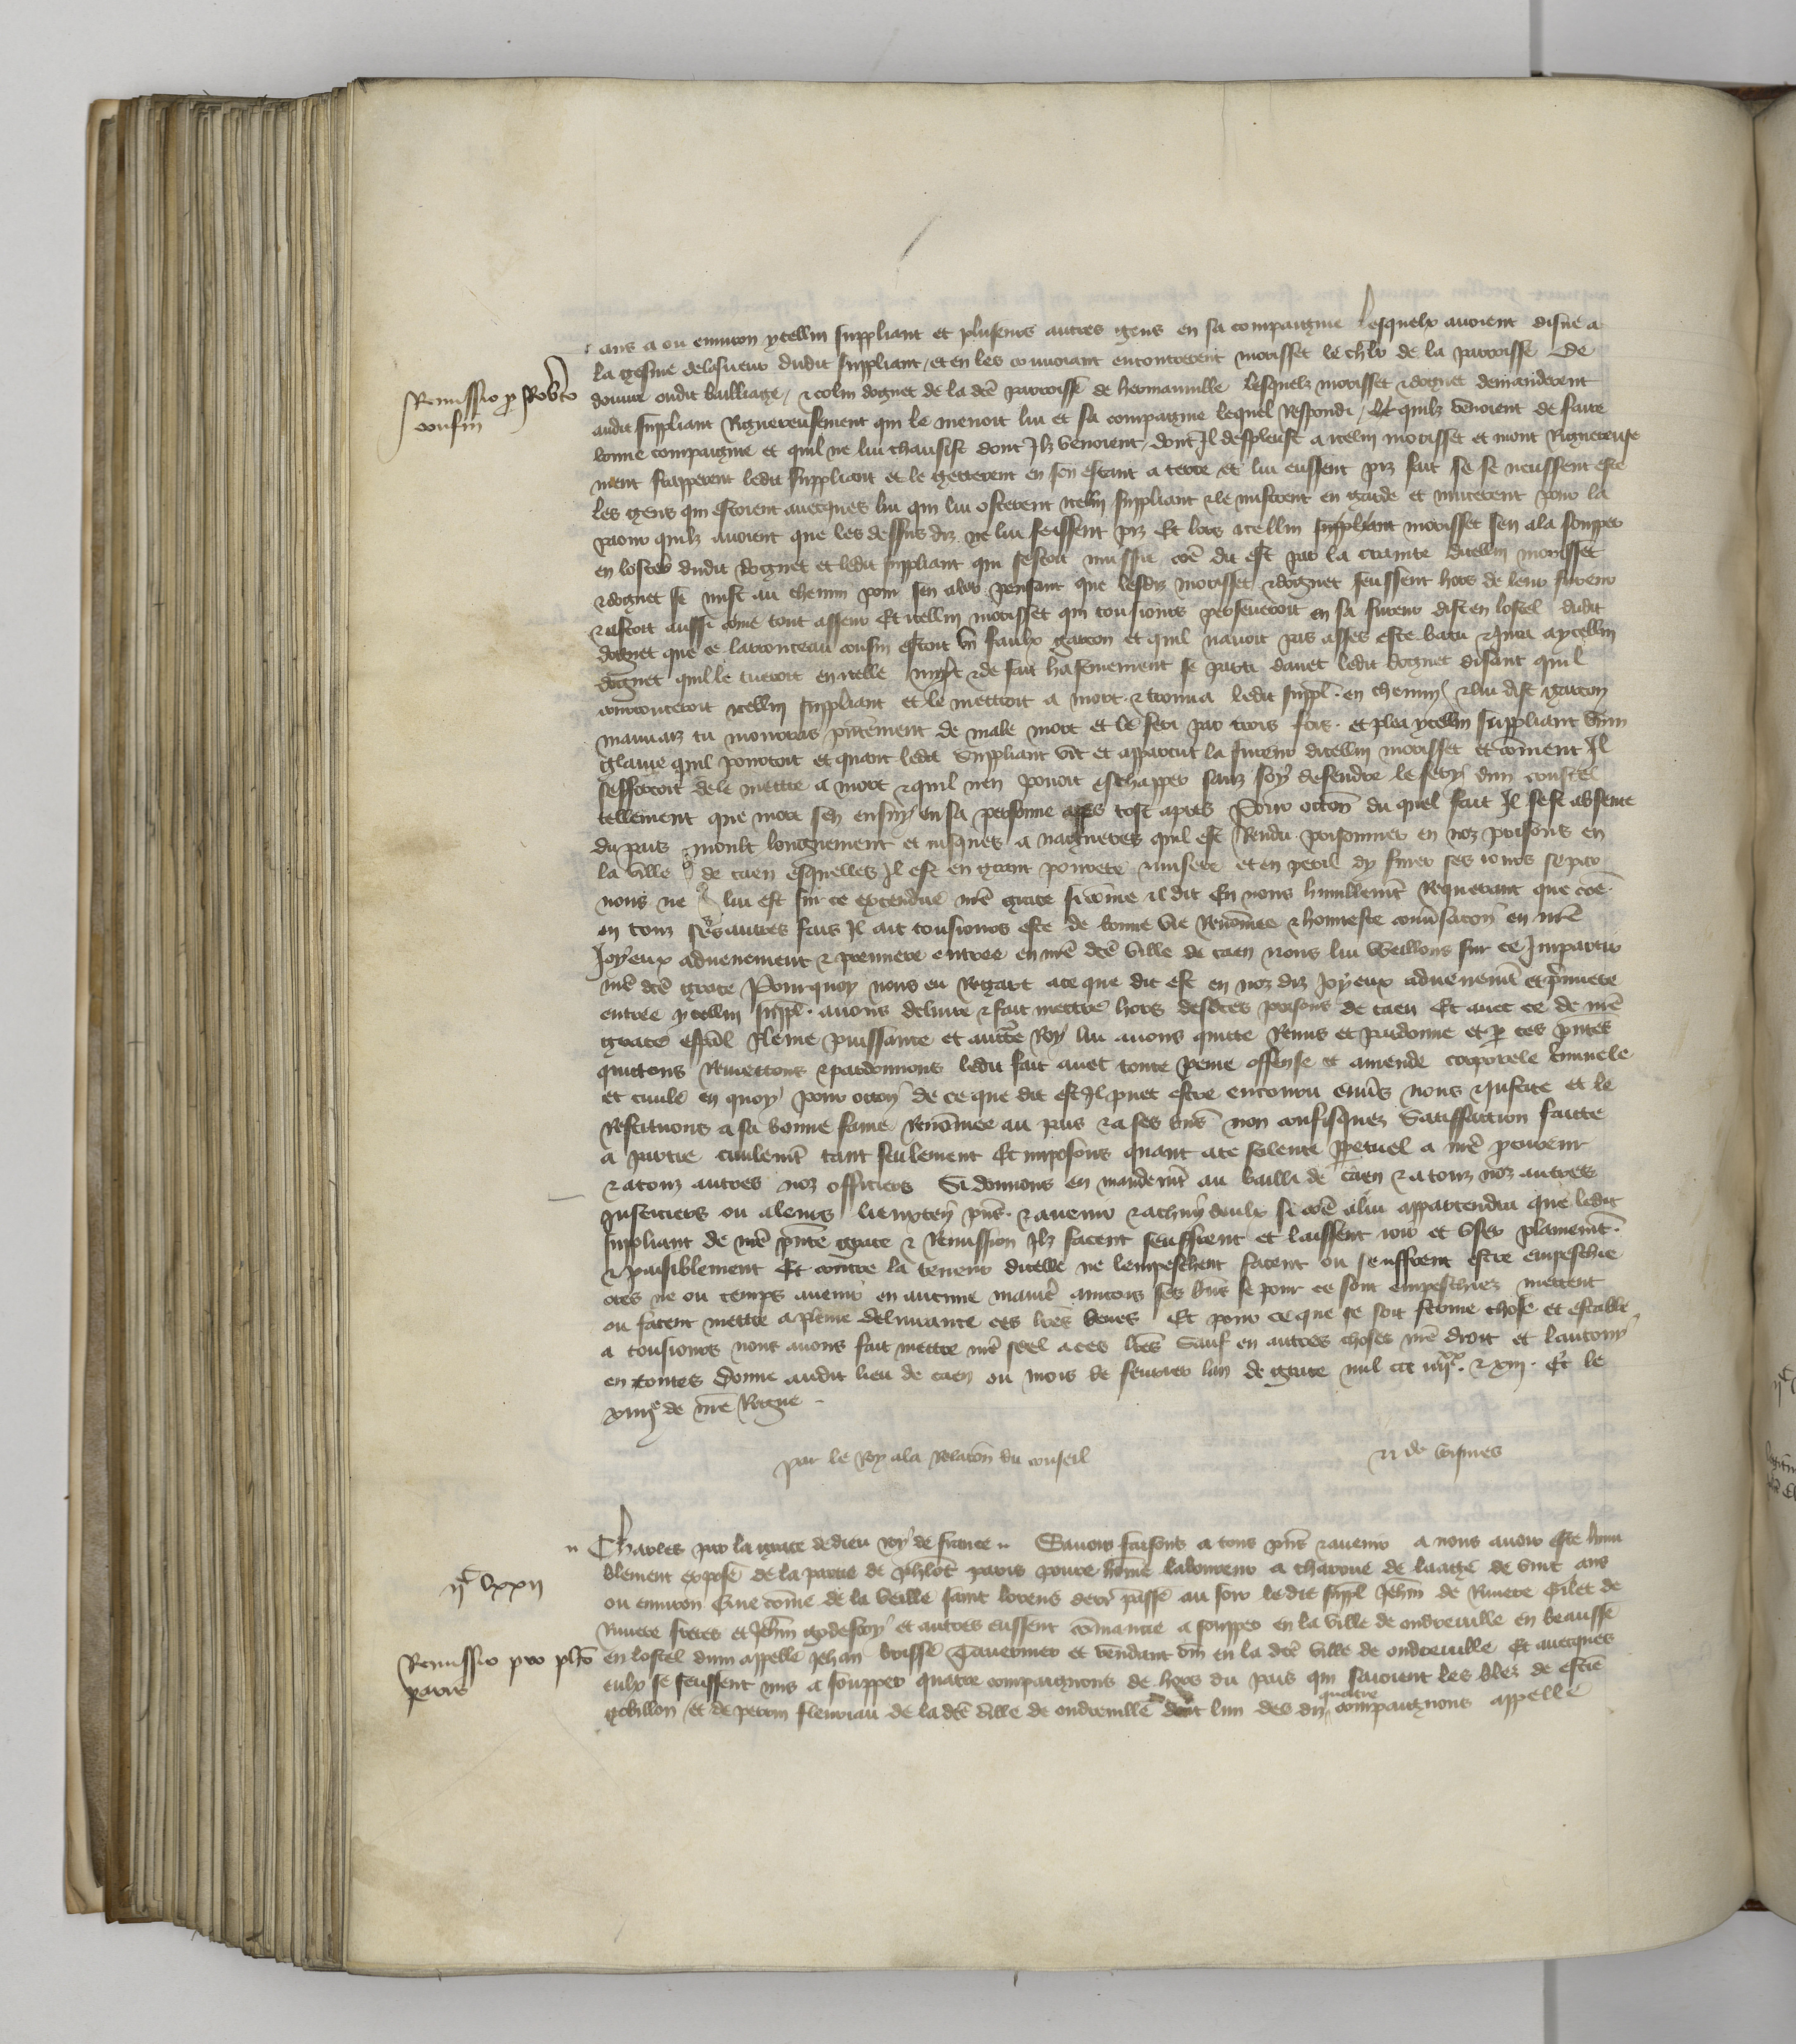 ans a ou environ ycellui suppliant et plusieurs autres gens en sa compaignie lesquelx avoient disné a
la gesine de la sueur dudit suppliant et en les convoiant encontrerent morisset le chlr de la parroisse de
douvre oudit bailliage / & colin dognet de la dce parroisse de hermanville lesquelz morisset & dognet demanderent
Remissio p Robto
cousin
audit suppliant Rigureusement qui le menoit lui et sa compaignie lequel Respondi / quilz venoient de faire
bonne compaignie et quil ne lui chausist dont Ilz venoient / dont Il despleust a icelui morisset et moult Rigureuse
ment frapperent ledit suppliant et le getterent en son estant a terre et lui eussent piz fait se se neussent esté
les gens qui estoient avecques lui qui lui osterent icelui suppliant & le mistrent en garde et mucerent pour la
paour quilz avoient que les dessus diz ne lui feissent piz Et lors icellui suppliant morisset sen ala soupper
en lostel dudit dognet et ledit suppliant qui sestoit mussié coe dit est par la crainte dicellui morisset
& dognet se mist au chemin pour sen aler pensant que lesdiz morisset & dognet feussent hors de leur fureur
& estoit aussi come tout asseur Et icellui morisset qui tousjours perseveroit en sa fureur dist en lostel dudit
dognet que ce larronceau cousin estoit un faulx garcon et quil navoit pas assez esté batu & jura a ycellui
dognet quil le tueroit en icelle nuyt & de fait hastivement se parti davec ledit dognet disant quil
encontreroit icellui suppliant et le mettroit a mort & trouva ledit suppl. en chemin / & lui dist garcon
mauvaiz tu mourras pntement de male mort et le feri par trois fois et ycellui suppliant dun
glaive quil portoit et quant ledit suppliant vit et apparcut la fureur dicellui morisset et coment Il
sefforcoit de le mettre a mort & quil nen povoit eschapper sanz soy defendre le fery dun coustel
tellement que mort sen ensuy en sa personne assez tost apres Pour occon du quel fait Il sest absenté
du pais moult longuement et jusques a nagueres quil est Rendu prisonnier en noz prisons en
la ville de caen esquelles Il est en grant povreté & misere et en peril dy finer ses jours se par
nous ne lui est sur ce extendue nre grace si come il dit En nous humblemt Requerant que coe
en touz ses autres fais Il ait tousjours esté de bonne vie Renomee & honneste conversacon en nre
Joyeux advenement & premiere entree en nre dce ville de caen nous lui vueillons sur ce Impartir
nre dce grace Pourquoy nous eu Regart a ce que dit est en noz diz Joyeux advenemt et premiere
entree ycellui suppl. avons delivré & fait mettre hors desdces prisons de caen Et avec ce de nre
grace espal pleine puissance et auctte Roy lui avons quitté Remis et pardonné et p ces pntes
quittons Remettons & pardonnons ledit fait avec toute peine offense et amende corporele criminele
et civile en quoy pour occon de ce que dit est Il puet estre encouru envers nous & Justice et le
Restituons a sa bonne fame Renomee au pais & a ses biens non confisquez Satisfaction faicte
a partie civilemt tant seulement Et imposons quant a ce silence perpetuel a nre procureur
& a touz autres noz officiers Si donnons en mandemt au bailli de caen & a touz noz autres
Justiciers ou a leurs lieuxten pns & avenir & a chun deulx si coe a lui appartendra que ledit
suppliant de nre pnte grace & Remission Ilz facent seuffrent et laissent joir et user plainemt
& paisiblement Et contre la teneur dicelle ne lempeschent facent ou seuffrent estre empeschié
ores ne ou temps avenir en aucune manie aincois ses biens se pour ce sont empeschiez mettent
ou facent mettre a pleine delivrance ces lres veues Et pour ce que ce soit ferme chose et estable
a tousjours nous avons fait mettre nre seel a ces lres Sauf en autres choses nre droit et lautruy
en toutes donné audit lieu de caen ou mois de fevrier lan de grace mil ccc iiiixx & xiii Et le
xiiiie de nre Regne
par le Roy a la relacon du conseil
N de voisines
iic lxxii
Charles par la grace de dieu roy de france Savoir faisons a tous pns & avenir a nous avoir esté hum
blement exposé de la partie de phlot paris povre homme laboureur a charrue de laage de vint ans
ou environ Que come de la veille saint lorens derr passé au soir ledit suppl Jehan de Riviere Gilet de
Riviere freres et Jehan godefroy et autres eussent comancié a soupper en la ville de ondreville en beausse
Remissio pro pho
paris
en lostel dun appellé Jehan brisse Tavernier et vendant vin en la dce ville de ondreville Et avecques
eulx se feussent mis a soupper quatre compaignons de hors du pais qui soioient les blez de estie
gobillon / et de perrin fleuriau de la dce ville de ondreville dont lun des diz quatre compaignons appellé